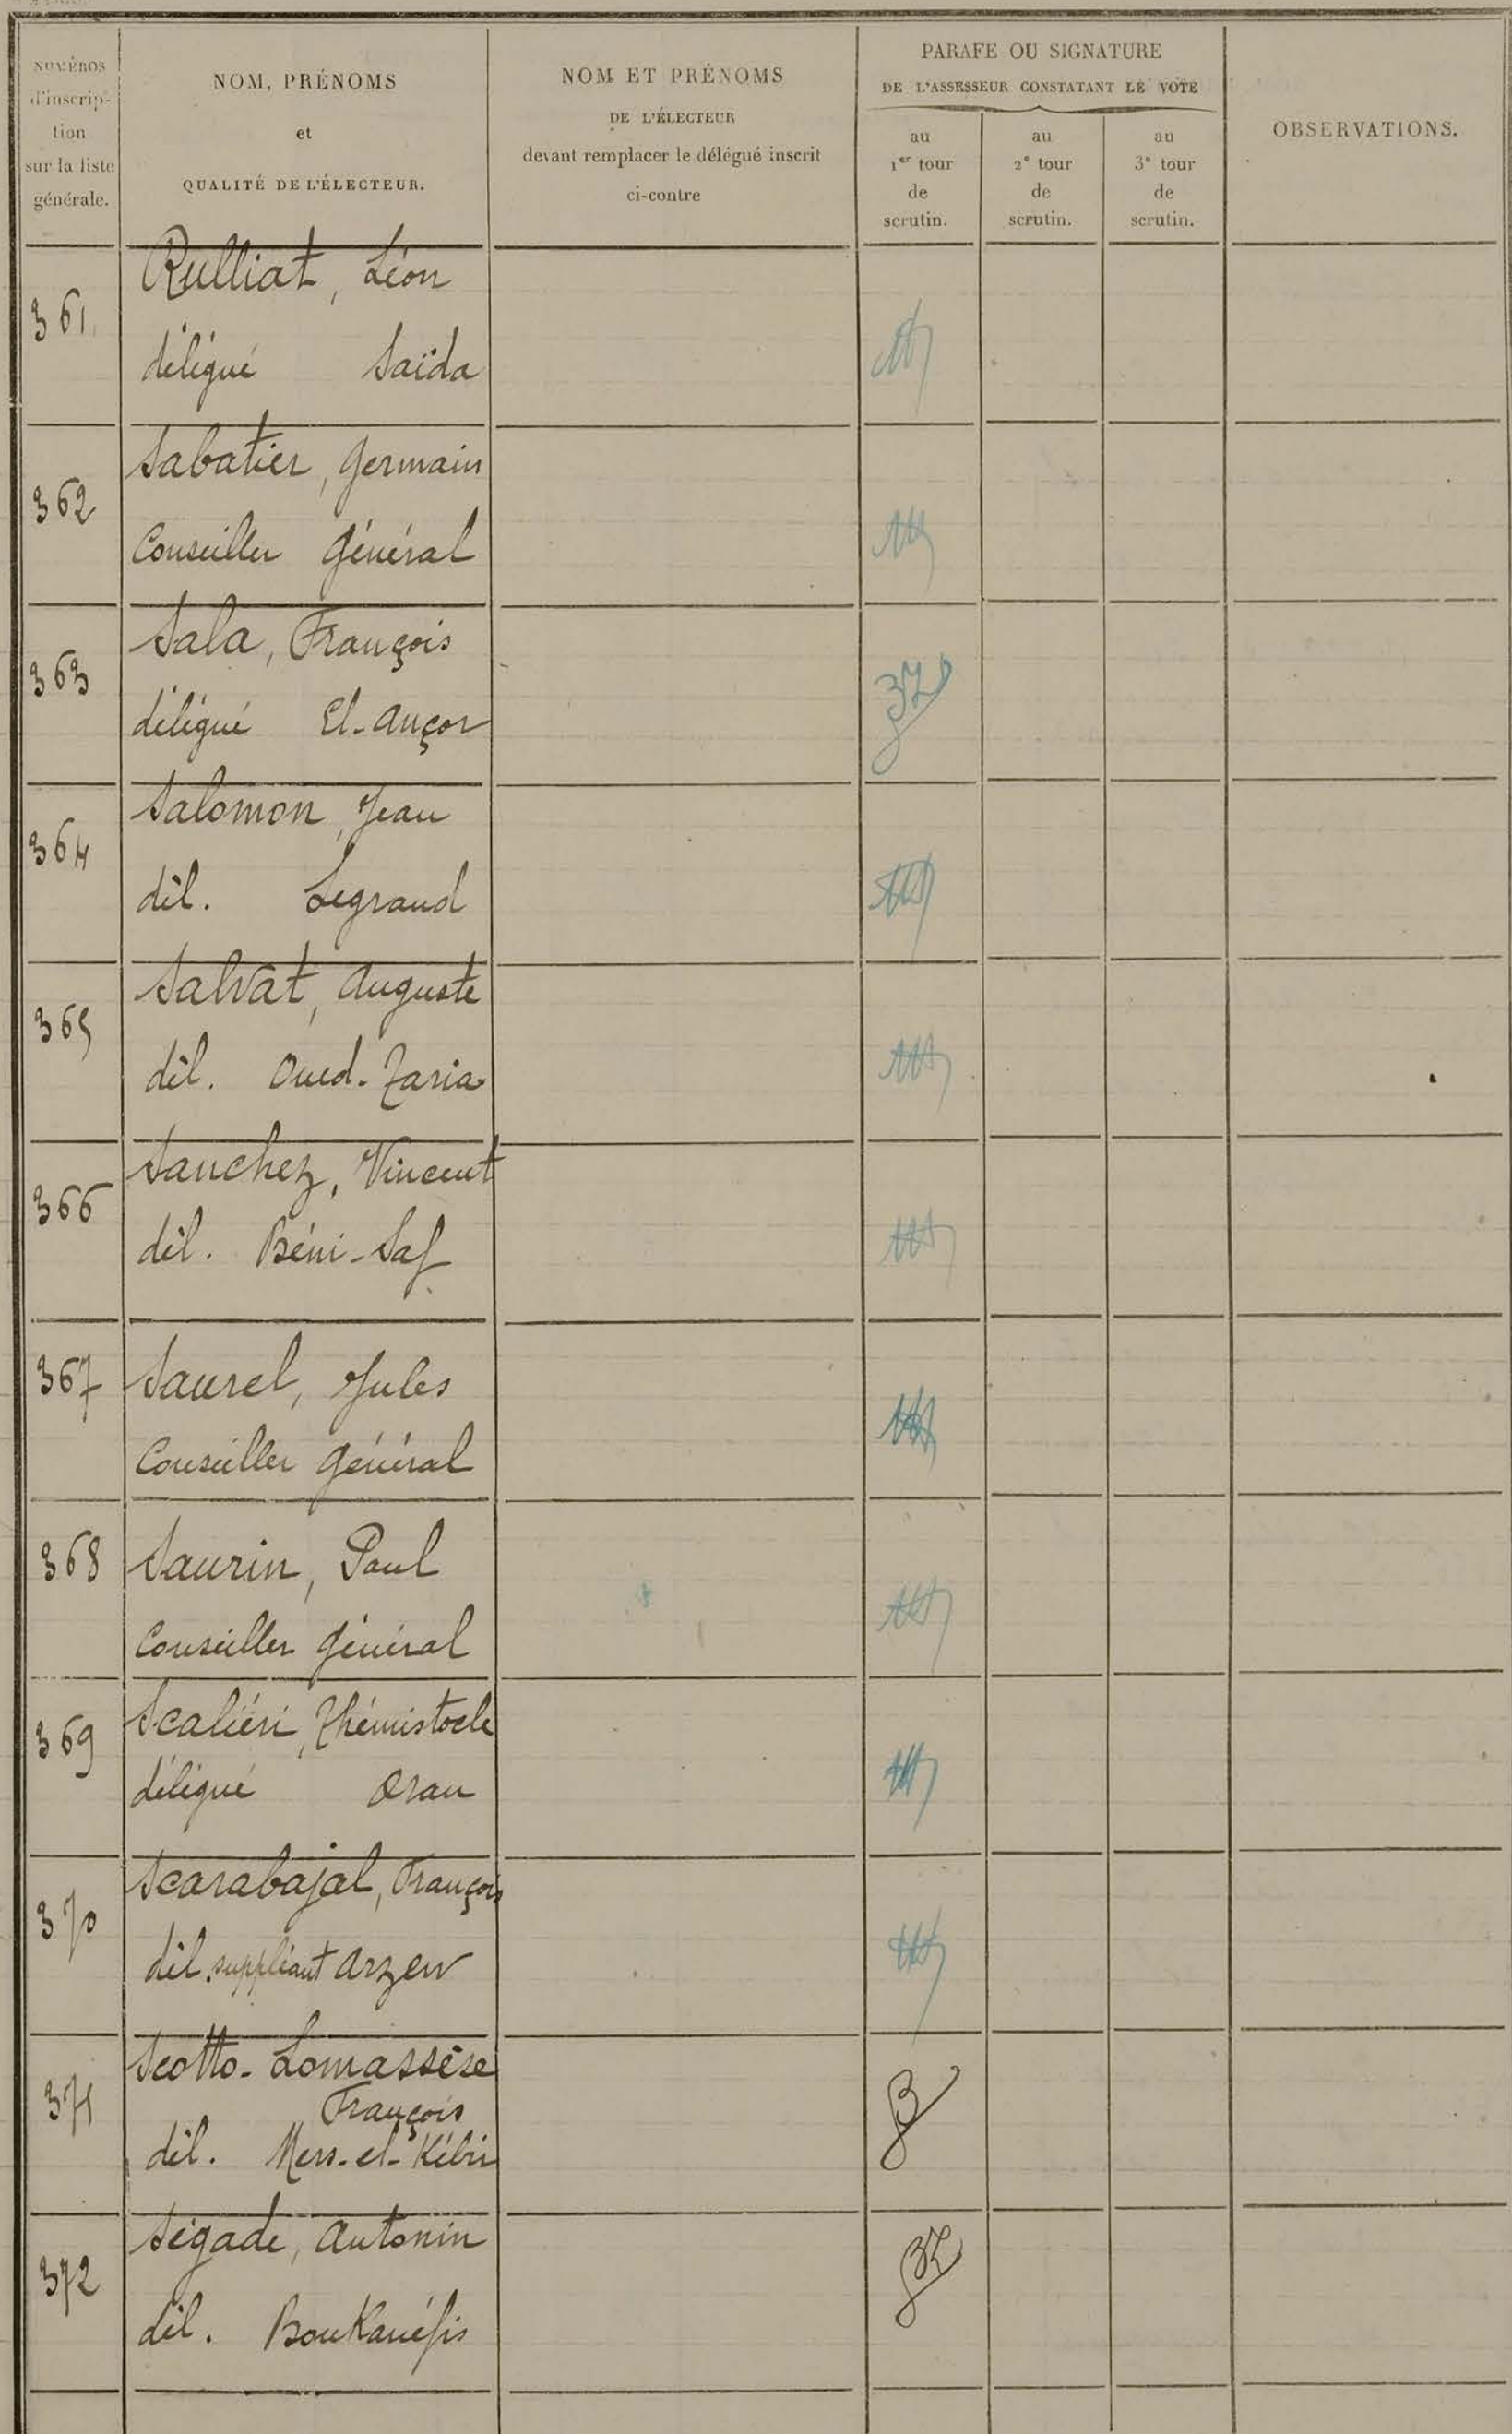 NUMÉROS
d'inscrip-
tion
sur la liste
générale.
NOM, PRÉNOMS
et
QUALITÉ DE L'ÉLECTEUR.
NOM ET PRÉNOMS
DE L'ÉLECTEUR
devant remplacer le délégué inscrit
ci-contre
PARAFE OU SIGNATURE
DE L'ASSESSEUR CONSTATANT LE VOTE
au
1er tour
de
scrutin.
au
2e tour
de
scrutin.
au
3e tour
de
scrutin.
OBSERVATIONS.
361
Rulliat, Léon
délégué Saïda
362
Sabatier, Germain
Conseiller Général
363
Sala, François
délégué El-Ançor
364
Salomon, Jean
dél. Legrand
365
Salvat, Auguste
dél. Oued-Taria
366
Sanchez, Vincent
dél. Béni-Saf
367
Saurel, Jules
Conseiller Général
368
Saurin, Paul
Conseiller Général
369
Scaliéri, Thémistocle
délégué Oran
370
Scarabajal, François
dél. suppléant Arzew
371
Scotto-Lomassèse
François
dél. Mers-el-Kébir
372
Ségade, Antonin
dél. Boukanéfis